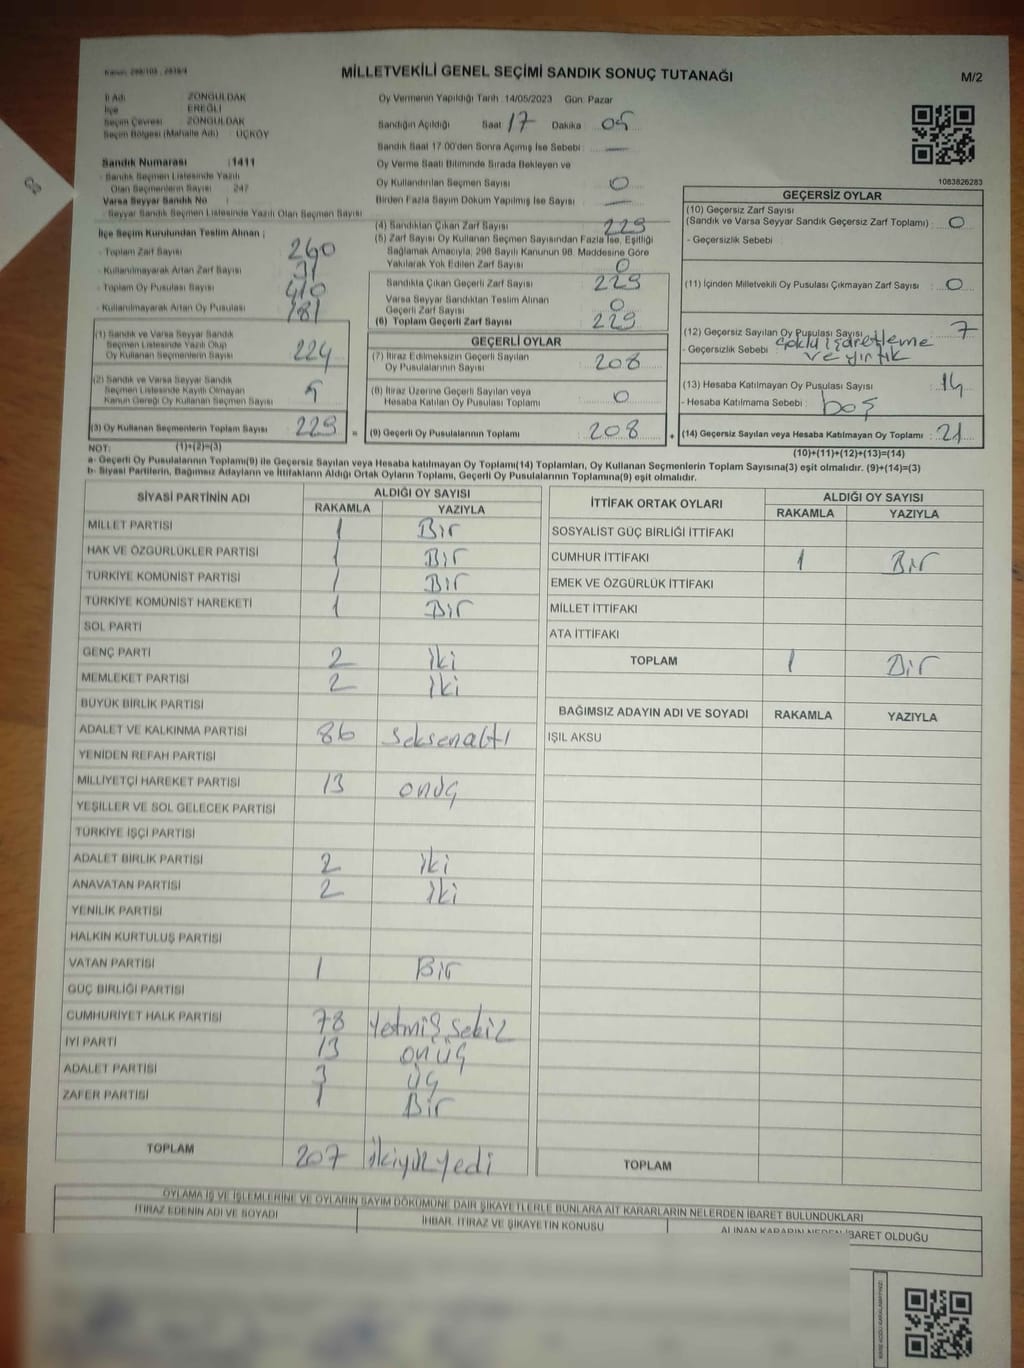 MİLLETVEKİLİ GENEL SEÇİMİ SANDIK SONUÇ TUTANAĞI
M/2
İl Adı ZONGULDAK
İlçe EREĞLİ
Seçim Çevresi ZONGULDAK
Seçim Bölgesi (Mahalle Adı) : ÜÇKÖY
Sandık Numarası : 1411
- Sandık Seçmen Listesinde Yazılı
Olan Seçmenlerin Sayısı 247
Varsa Seyyar Sandık No
- Seyyar Sandık Seçmen Listesinde Yazılı Olan Seçmen Sayısı
İlçe Seçim Kurulundan Teslim Alınan ;
- Toplam Zarf Sayısı 260
- Kullanılmayarak Artan Zarf Sayısı 31
- Toplam Oy Pusulası Sayısı 410
- Kullanılmayarak Artan Oy Pusulası 181
(1) Sandık ve Varsa Seyyar Sandık
Seçmen Listesinde Yazılı Olup
Oy Kullanan Seçmenlerin Sayısı 224
(2) Sandık ve Varsa Seyyar Sandık
Seçmen Listesinde Kayıtlı Olmayan
Kanun Gereği Oy Kullanan Seçmen Sayısı 5
(3) Oy Kullanan Seçmenlerin Toplam Sayısı 229 =
Oy Vermenin Yapıldığı Tarih :14/05/2023 Gün: Pazar
Sandığın Açıldığı Saat 17 Dakika 05
Sandık Saat 17.00'den Sonra Açılmış İse Sebebi : —
Oy Verme Saati Bitiminde Sırada Bekleyen ve
Oy Kullandırılan Seçmen Sayısı 0
Birden Fazla Sayım Döküm Yapılmış İse Sayısı : —
(4) Sandıktan Çıkan Zarf Sayısı 229
(5) Zarf Sayısı Oy Kullanan Seçmen Sayısından Fazla İse, Eşitliği
Sağlamak Amacıyla, 298 Sayılı Kanunun 98. Maddesine Göre
Yakılarak Yok Edilen Zarf Sayısı 0
Sandıkta Çıkan Geçerli Zarf Sayısı 229
Varsa Seyyar Sandıktan Teslim Alınan
Geçerli Zarf Sayısı 0
(6) Toplam Geçerli Zarf Sayısı 229
GEÇERLİ OYLAR
(7) İtiraz Edilmeksizin Geçerli Sayılan
Oy Pusulalarının Sayısı 208
(8) İtiraz Üzerine Geçerli Sayılan veya
Hesaba Katılan Oy Pusulası Toplamı 0
(9) Geçerli Oy Pusulalarının Toplamı 208 +
1083826283
GEÇERSİZ OYLAR
(10) Geçersiz Zarf Sayısı
(Sandık ve Varsa Seyyar Sandık Geçersiz Zarf Toplamı) : 0
- Geçersizlik Sebebi :
(11) İçinden Milletvekili Oy Pusulası Çıkmayan Zarf Sayısı : 0
(12) Geçersiz Sayılan Oy Pusulası Sayısı : 7
- Geçersizlik Sebebi : Çoklu işaretleme
ve yırtık
(13) Hesaba Katılmayan Oy Pusulası Sayısı : 14
- Hesaba Katılmama Sebebi : boş
(14) Geçersiz Sayılan veya Hesaba Katılmayan Oy Toplamı : 21
NOT: (1)+(2)=(3)
(10)+(11)+(12)+(13)=(14)
a- Geçerli Oy Pusulalarının Toplamı(9) ile Geçersiz Sayılan veya Hesaba katılmayan Oy Toplamı(14) Toplamları, Oy Kullanan Seçmenlerin Toplam Sayısına(3) eşit olmalıdır. (9)+(14)=(3)
b- Siyasi Partilerin, Bağımsız Adayların ve İttifakların Aldığı Ortak Oyların Toplamı, Geçerli Oy Pusulalarının Toplamına(9) eşit olmalıdır.
SİYASİ PARTİNİN ADI ALDIĞI OY SAYISI
RAKAMLA YAZIYLA
MİLLET PARTİSİ 1 Bir
HAK VE ÖZGÜRLÜKLER PARTİSİ 1 Bir
TÜRKİYE KOMÜNİST PARTİSİ 1 Bir
TÜRKİYE KOMÜNİST HAREKETİ 1 Bir
SOL PARTİ
GENÇ PARTİ 2 iki
MEMLEKET PARTİSİ 2 iki
BÜYÜK BİRLİK PARTİSİ
ADALET VE KALKINMA PARTİSİ 86 seksenaltı
YENİDEN REFAH PARTİSİ
MİLLİYETÇİ HAREKET PARTİSİ 13 onüç
YEŞİLLER VE SOL GELECEK PARTİSİ
TÜRKİYE İŞÇİ PARTİSİ
ADALET BİRLİK PARTİSİ 2 iki
ANAVATAN PARTİSİ 2 iki
YENİLİK PARTİSİ
HALKIN KURTULUŞ PARTİSİ
VATAN PARTİSİ 1 Bir
GÜÇ BİRLİĞİ PARTİSİ
CUMHURİYET HALK PARTİSİ 78 Yetmiş sekiz
İYİ PARTİ 13 onüç
ADALET PARTİSİ 3 üç
ZAFER PARTİSİ 1 Bir
TOPLAM 207 ikiyüzyedi
İTTİFAK ORTAK OYLARI ALDIĞI OY SAYISI
RAKAMLA YAZIYLA
SOSYALİST GÜÇ BİRLİĞİ İTTİFAKI
CUMHUR İTTİFAKI 1 Bir
EMEK VE ÖZGÜRLÜK İTTİFAKI
MİLLET İTTİFAKI
ATA İTTİFAKI
TOPLAM 1 Bir
BAĞIMSIZ ADAYIN ADI VE SOYADI RAKAMLA YAZIYLA
IŞIL AKSU
TOPLAM
OYLAMA İŞ VE İŞLEMLERİNE VE OYLARIN SAYIM DÖKÜMÜNE DAİR ŞİKAYETLERLE BUNLARA AİT KARARLARIN NELERDEN İBARET BULUNDUKLARI
İTİRAZ EDENİN ADI VE SOYADI İHBAR, İTİRAZ VE ŞİKAYETİN KONUSU ALINAN KARARIN NEDEN İBARET OLDUĞU